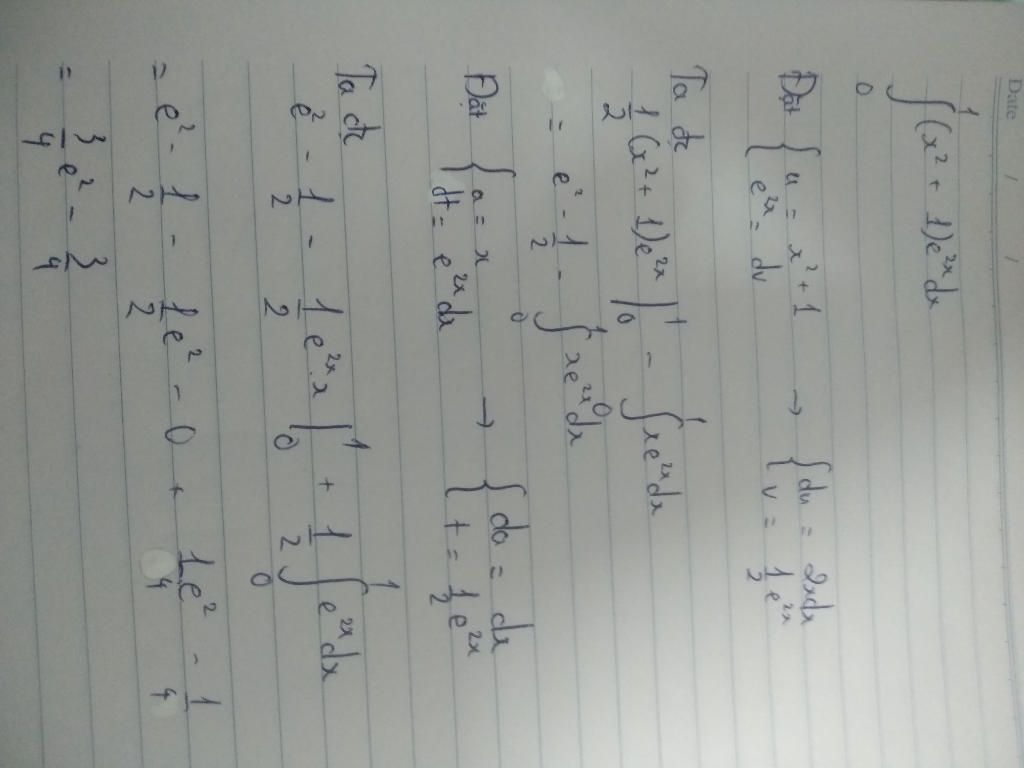 Date / /
∫₀¹ (x² + 1)e²ˣdx
Đặt { u = x² + 1 → { du = 2xdx
e²ˣ = dv v = 1/2 e²ˣ
Ta đc
1/2 (x² + 1)e²ˣ |₀¹ - ∫₀¹ xe²ˣdx
= e² - 1/2 - ∫₀¹ xe²ˣdx
Đặt { a = x → { da = dx
dt = e²ˣdx t = 1/2 e²ˣ
Ta đc
e² - 1/2 - 1/2 e²ˣ.x |₀¹ + 1/2 ∫₀¹ e²ˣdx
= e² - 1/2 - 1/2 e² - 0 + 1/4 e² - 1/4
= 3/4 e² - 3/4